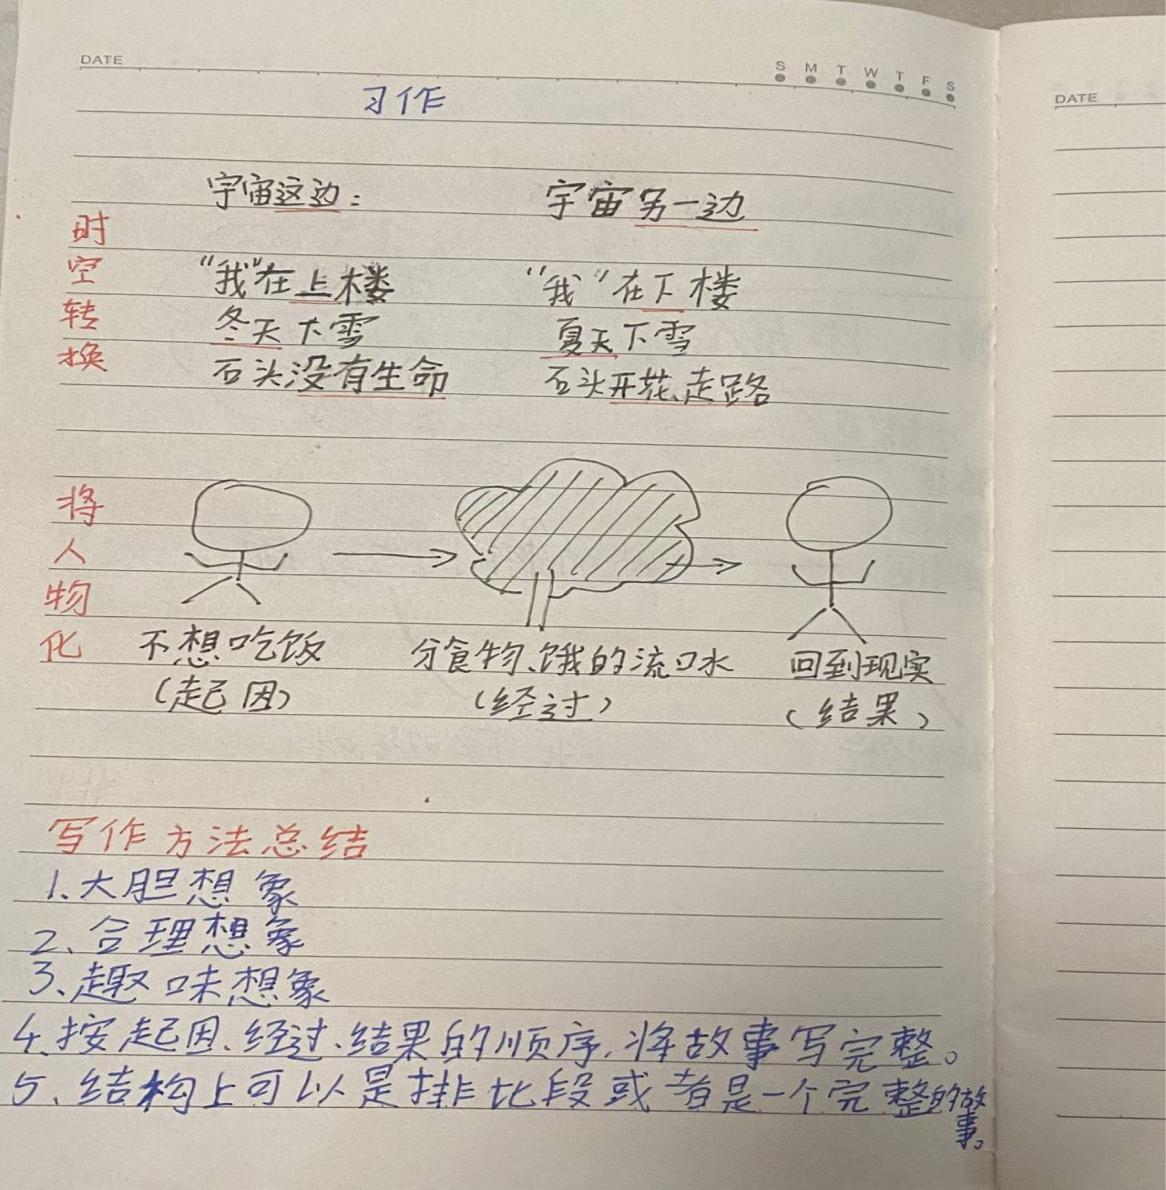 DATE
S M T W T F S
DATE
习作
宇宙这边：
宇宙另一边
时空转换
"我"在上楼
"我"在下楼
冬天下雪
夏天下雪
石头没有生命
石头开花、走路
将人物化
不想吃饭
分食物、饿的流口水
回到现实
(起因)
(经过)
(结果)
写作方法总结
1、大胆想象
2、合理想象
3、趣味想象
4、按起因、经过、结果的顺序，将故事写完整。
5、结构上可以是排比段或者是一个完整的故事。